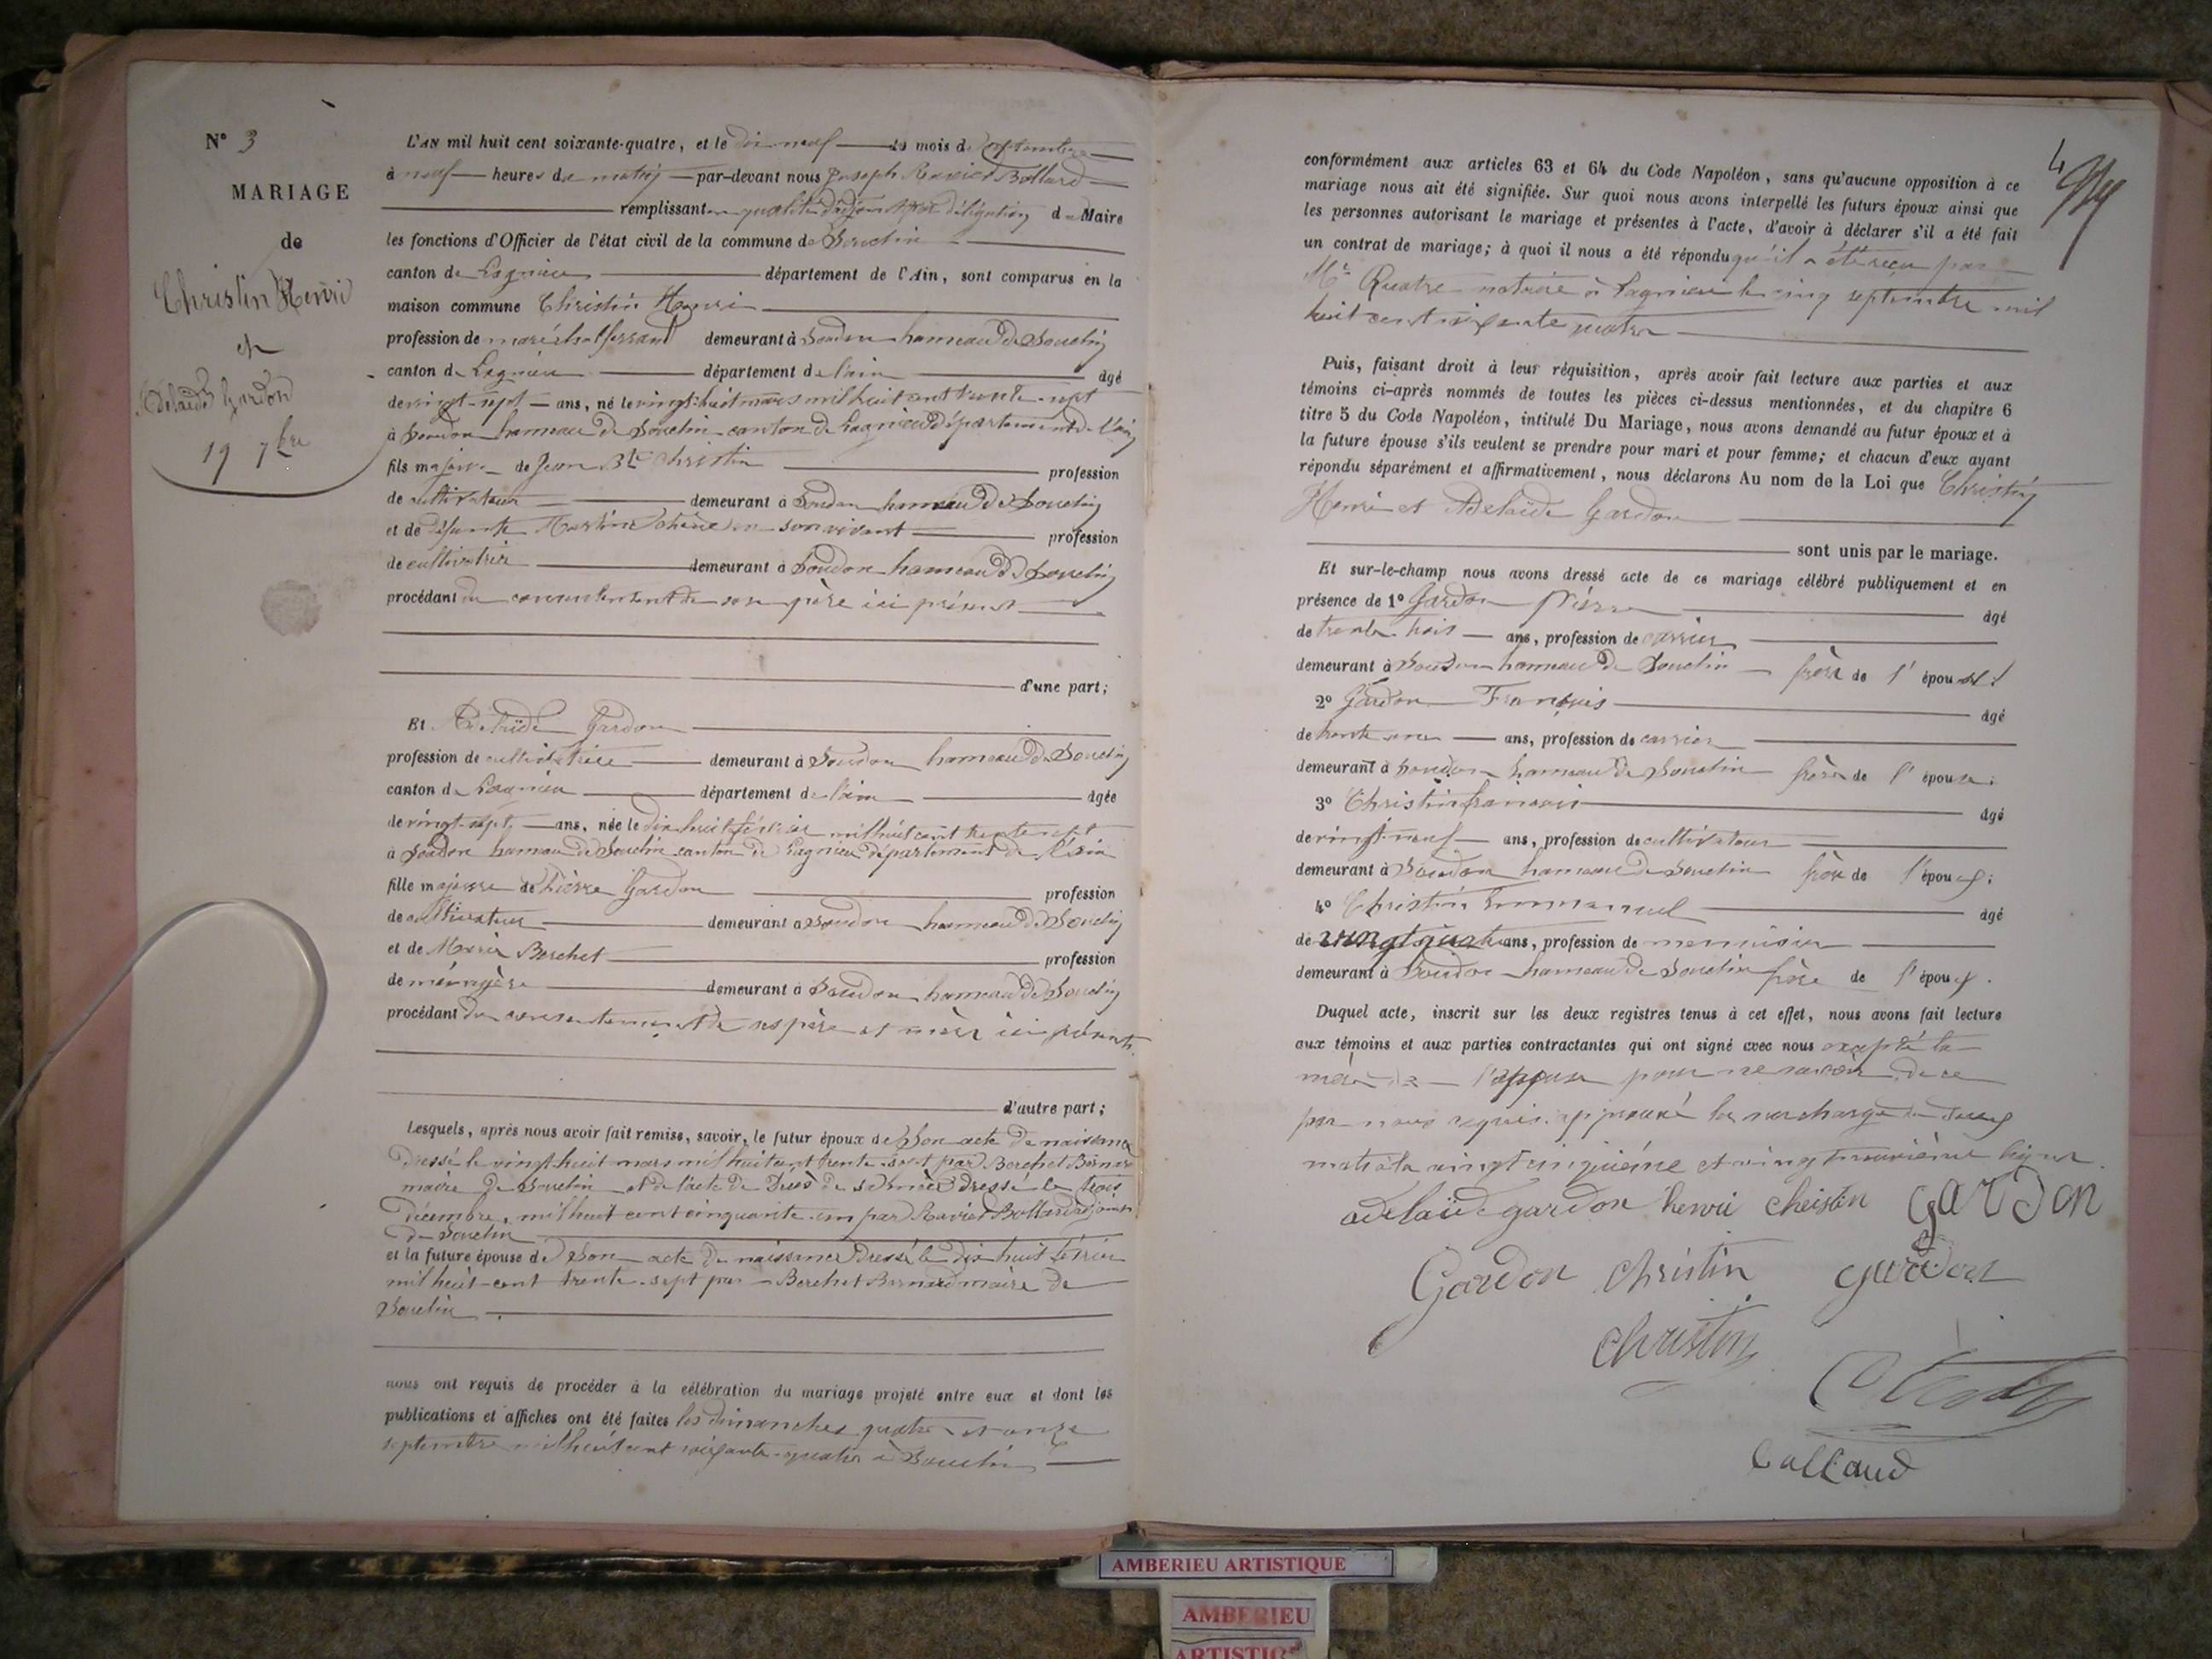 N° 3
MARIAGE
de
Christin Henri
et
Adelaïde Gardon
19 7bre
L'AN mil huit cent soixante-quatre, et le dix neuf du mois de septembre
à neuf heures du matin par-devant nous Joseph Ravier Bollard
remplissant en qualité d'adjoint par délégation du Maire
les fonctions d'Officier de l'état civil de la commune de Souclin
canton de Lagnieu département de l'Ain, sont comparus en la
maison commune Christin Henri
profession de maréchal ferrant demeurant à Soudon hameau de Souclin
canton de Lagnieu département de l'ain âgé
de vingt-sept ans, né le vingt-huit mars mil huit cent trente-sept
à Soudon hameau de Souclin canton de Lagnieu département de l'ain
fils majeur de Jean Bte Christin profession
de cultivateur demeurant à Soudon hameau de Souclin
et de défunte Martine en son vivant profession
de cultivatrice demeurant à Soudon hameau de Souclin
procédant du consentement de son père ici présent
d'une part;
Et Adelaïde Gardon
profession de cultivatrice demeurant à Soudon hameau de Souclin
canton de Lagnieu département de l'ain âgée
de vingt-sept ans, née le dix huit février mil huit cent trente sept
à Soudon hameau de Souclin canton de Lagnieu département de l'ain
fille majeure de Pierre Gardon profession
de cultivateur demeurant à Soudon hameau de Souclin
et de Marie Berchet profession
de ménagère demeurant à Soudon hameau de Souclin
procédant du consentement de ses père et mère ici présents.
d'autre part;
Lesquels, après nous avoir fait remise, savoir, le futur époux de son acte de naissance
dressé le vingt huit mars mil huit cent trente-sept par Berchet Bernard
maire de Souclin et de l'acte de décès de sa mère dressé le trois
décembre, mil huit cent cinquante-un par Ravier Bollard adjoint
de Souclin
et la future épouse de son acte de naissance dressé le dix huit février
mil huit-cent trente-sept par Berchet Bernard maire de
Souclin
nous ont requis de procéder à la célébration du mariage projeté entre eux et dont les
publications et affiches ont été faites les dimanches quatre et onze
septembre mil huit cent soixante-quatre à Souclin
4
conformément aux articles 63 et 64 du Code Napoléon, sans qu'aucune opposition à ce
mariage nous ait été signifiée. Sur quoi nous avons interpellé les futurs époux ainsi que
les personnes autorisant le mariage et présentes à l'acte, d'avoir à déclarer s'il a été fait
un contrat de mariage; à quoi il nous a été répondu qu'il a été reçu par
Me Quatre notaire à Lagnieu le cinq septembre mil
huit cent soixante quatre
Puis, faisant droit à leur réquisition, après avoir fait lecture aux parties et aux
témoins ci-après nommés de toutes les pièces ci-dessus mentionnées, et du chapitre 6
titre 5 du Code Napoléon, intitulé Du Mariage, nous avons demandé au futur époux et à
la future épouse s'ils veulent se prendre pour mari et pour femme; et chacun d'eux ayant
répondu séparément et affirmativement, nous déclarons Au nom de la Loi que Christin
Henri et Adelaïde Gardon
sont unis par le mariage.
Et sur-le-champ nous avons dressé acte de ce mariage célébré publiquement et en
présence de 1° Gardon Pierre âgé
de trente trois ans, profession de carrier
demeurant à Soudon hameau de Souclin frère de l'épouse;
2° Gardon François âgé
de trente ans, profession de carrier
demeurant à Soudon hameau de Souclin frère de l'épouse;
3° Christin françois âgé
de vingt-neuf ans, profession de cultivateur
demeurant à Soudon hameau de Souclin frère de l'époux;
4° Christin Emmanuel âgé
de vingt quatre ans, profession de menuisier
demeurant à Soudon hameau de Souclin frère de l'époux.
Duquel acte, inscrit sur les deux registres tenus à cet effet, nous avons fait lecture
aux témoins et aux parties contractantes qui ont signé avec nous excepté la
mère de l'épouse pour ne savoir de ce
par nous requis. approuvé la surcharge de deux
mots à la vingt cinquième et vingt neuvième lignes.
adelaïde gardon henri christin GARDON
Gardon christin gardon
christin
Bollard
AMBERIEU ARTISTIQUE
AMBERIEU
ARTISTIQ